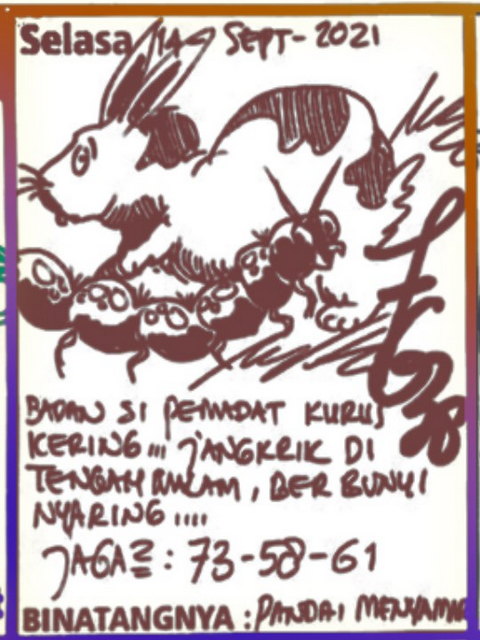 Selasa 14 SEPT - 2021
BADAN SI PEMADAT KURUS
KERING... JANGKRIK DI
TENGAH MALAM, BER BUNYI
NYARING....
JAGA2 : 73-58-61
BINATANGNYA : PANDAI MENYAMAR